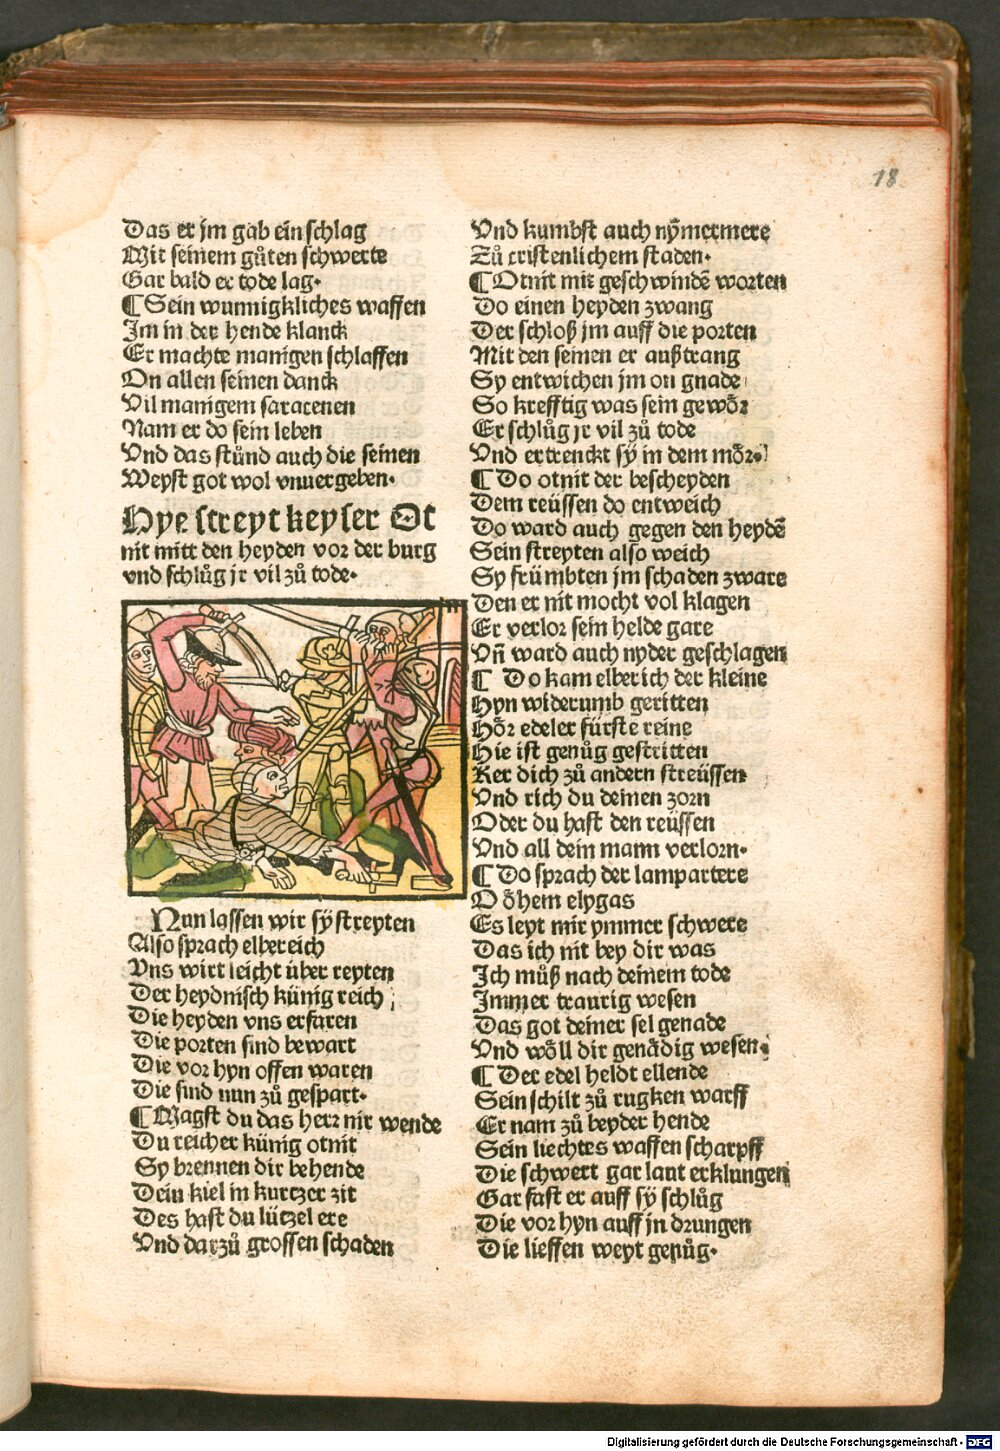 18
Das er jm gab ein schlag
Mit seinem gůten schwerte
Gar bald er tode lag.
¶ Sein wunnigkliches waffen
Im in der hende klanck
Er machte manigen schlaffen
On allen seinen danck
Vil manigem saracenen
Nam er do sein leben
Vnd das stůnd auch die seinen
Weyst got wol vnuergeben.
Hye streyt keyser Ot
nit mitt den heyden vor der burg
vnd schlůg jr vil zů tode.
Nun lassen wir sÿ streyten
Also sprach elbereich
Vns wirt leicht über reyten
Der heydnisch künig reich
Die heyden vns erfaren
Die porten sind bewart
Die vor hyn offen waren
Die sind nun zů gespart.
¶ Magst du das herz nit wende
Du reicher künig otnit
Sy brennen dir behende
Dein kiel in kurtzer zit
Des hast du lützel ere
Vnd darzů grossen schaden
Vnd kumbst auch nÿmermere
Zů cristenlichem staden.
¶ Otnit mit geschwindē worten
Do einen heyden zwang
Der schloß jm auff die porten
Mit den seinen er außtrang
Sy entwichen jm on gnade
So krefftig was sein gewoͤr
Er schlůg jr vil zů tode
Vnd ertrenckt sÿ in dem moͤr.
¶ Do otnit der bescheyden
Dem reüssen do entweich
Do ward auch gegen den heydē
Sein streyten also weich
Sy frümbten jm schaden zware
Den er nit mocht vol klagen
Er verlor sein helde gare
Vn̄ ward auch nyder geschlagen
¶ Do kam elberich der kleine
Hyn widerumb geritten
Hoͤr edeler fürste reine
Hie ist genůg gestritten
Ker dich zů andern streüssen
Vnd rich du deinen zorn
Oder du hast den reüssen
Vnd all dein mann verlorn.
¶ Do sprach der lampartere
O oͤhem elygas
Es leyt mir ymmer schwere
Das ich nit bey dir was
Ich můß nach deinem tode
Immer traurig wesen
Das got deiner sel genade
Vnd woͤll dir genaͤdig wesen.
¶ Der edel heldt ellende
Sein schilt zů rugken warff
Er nam zů beyder hende
Sein liechtes waffen scharpff
Die schwert gar laut erklungen
Gar fast er auff sÿ schlůg
Die vor hyn auff jn drungen
Die lieffen weyt genůg.
Digitalisierung gefördert durch die Deutsche Forschungsgemeinschaft - DFG